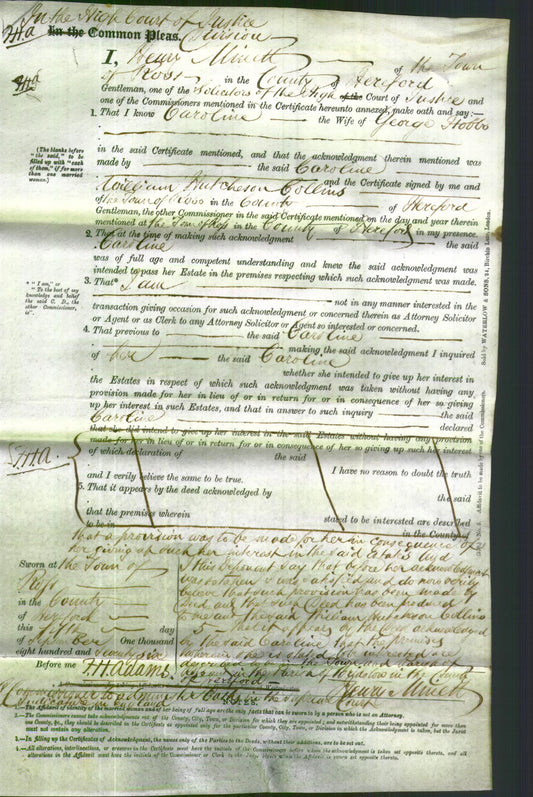 In the High Court of Justice
In the Common Pleas. Division
FHA
I, Henry Minett of the Town
of Ross in the County of Hereford
FHA
Gentleman, one of the Solicitors of the High of the Court of Justice and
one of the Commissioners mentioned in the Certificate hereunto annexed, make oath and say:—
1. That I know Caroline the Wife of George Hobbs
(The blanks before "the said," to be filled up with "each of them," if for more than one married woman.)
in the said Certificate mentioned, and that the acknowledgment therein mentioned was
made by the said Caroline
and the Certificate signed by me and
William Hutcheson Collins
of the Town of Ross in the County of Hereford
Gentleman, the other Commissioner in the said Certificate mentioned on the day and year therein
mentioned at the Town of Ross in the County of Hereford in my presence
2. That at the time of making such acknowledgment the said
Caroline
was of full age and competent understanding and knew the said acknowledgment was
intended to pass her Estate in the premises respecting which such acknowledgment was made.
* "I am," or "To the best of my knowledge and belief the said C. D., the other Commissioner, is".
3. That* I am
not in any manner interested in the
transaction giving occasion for such acknowledgment or concerned therein as Attorney Solicitor
or Agent or as Clerk to any Attorney Solicitor or Agent so interested or concerned.
4. That previous to the said Caroline
making the said acknowledgment I inquired
of her the said Caroline
whether she intended to give up her interest in
the Estates in respect of which such acknowledgment was taken without having any
provision made for her in lieu of or in return for or in consequence of her so giving
up her interest in such Estates, and that in answer to such inquiry the said
Caroline declared
that she did intend to give up her interest in the said Estates without having any provision
made for her in lieu of or in return for or in consequence of her so giving up her interest
FHA.
of which declaration of the said
I have no reason to doubt the truth
and I verily believe the same to be true.
5. That it appears by the deed acknowledged by the said
that the premises wherein stated to be interested are described
to be in in the County of
that a provision was to be made for her in consequence of
her giving up such her interest in the said estates And
I this Deponent say that before her acknowledgment
was so taken I was satisfied and do now verily
believe that such provision has been made by
Deed and that such Deed has been produced
to me and the said William Hutcheson Collins
5 That it appears by the Deed acknowledged
by the said Caroline that the premises
wherein she is stated to be interested are
Sworn at the Town of
Ross
in the County
of Hereford
this day
of September One thousand
eight hundred and Seventy six
Before me F H Adams
Henry Minett
A Commissioner to administer Oaths in the Supreme Court
of Judicature in England
Sold by WATERLOW & SONS, 24, Birchin Lane, London.
Affidavit to be made by one of the Commissioners.
2.—The Commissioners cannot take acknowledgments out of the County, City, Town, or Division for which they are appointed; and notwithstanding their being appointed for more than
one County, &c., they should be described in the Certificate as appointed only for the particular County, City, Town, or Division in which the Acknowledgment is taken, but the Jurat
must not contain any alteration.
3.—In filling up the Certificates of Acknowledgment, the names only of the Parties to the Deeds, without their additions, are to be set out.
4.—All alterations, interlineations, or erasures in the Certificate must have the initials of the Commissioners before whom the acknowledgment is taken set opposite thereto, and all
alterations in the Affidavit must have the initials of the Commissioner or Clerk to the Judge before whom the Affidavit is sworn set opposite thereto.